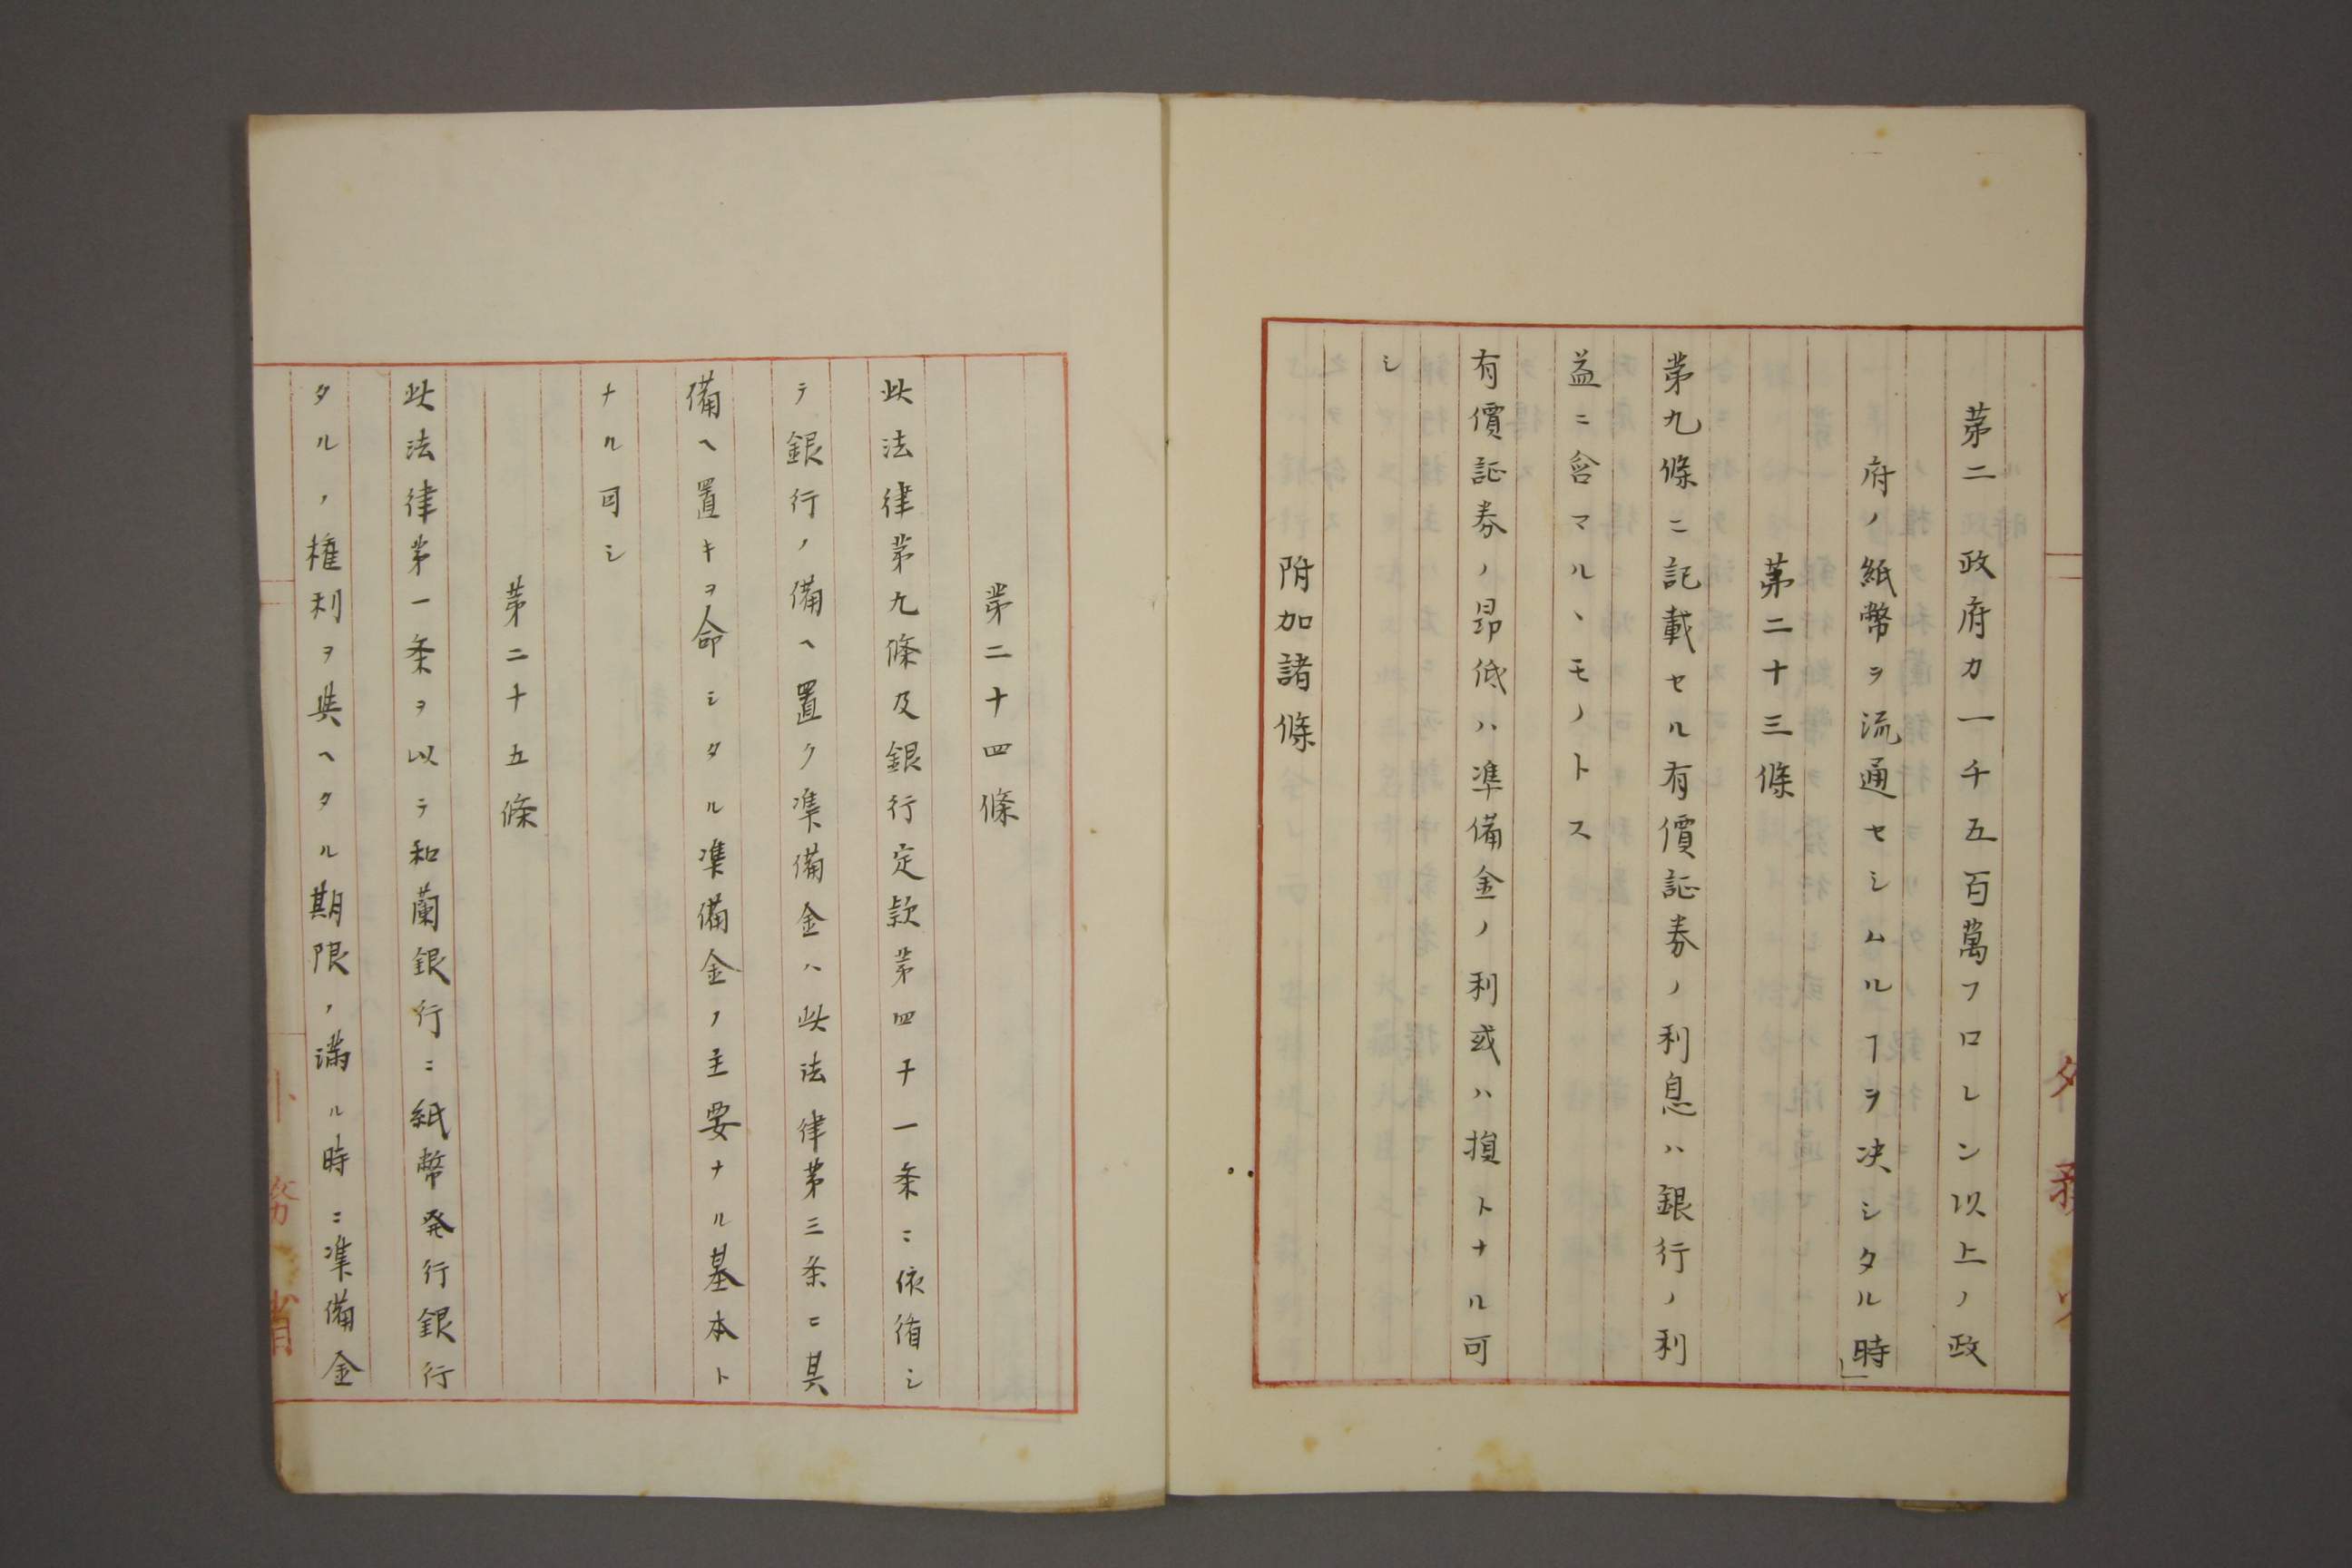 第二　政府カ一千五百萬フロレン以上ノ政
府ノ紙幣ヲ流通セシムルヿヲ决シタル時」
第二十三條
第九條ニ記載セル有價証券ノ利息ハ銀行ノ利
益ニ含マルヽモノトス
有價証券ノ昂低ハ準備金ノ利或ハ損トナル可
シ
附加諸條
第二十四條
此法律第九條及銀行定款第四十一条ニ依循シ
テ銀行ノ備ヘ置ク準備金ハ此法律第三条ニ其
備ヘ置キヲ命シタル準備金ノ主要ナル基本ト
ナル可シ
第二十五條
此法律第一条ヲ以テ和蘭銀行ニ紙幣発行銀行
タルノ権利ヲ與ヘタル期限ノ満ル時ニ準備金
外務省